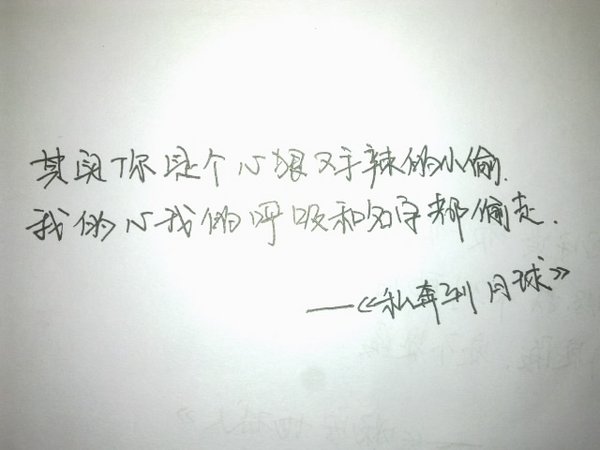 其实你是个心狠又手辣的小偷.
我的心我的呼吸和名字都偷走.
—《私奔到月球》